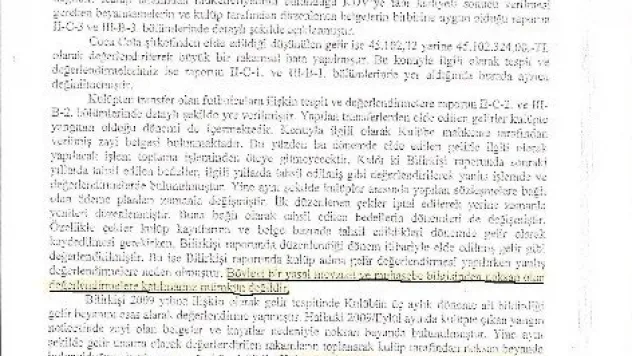 gereken beyannamelerin ve kulüp tarafından düzenlenen belgelerin birbirine uygun olduğu raporun
II-C-3 ve III-B-3. bölümlerinde detaylı şekilde açıklanmıştır.
Coca Cola şirketinden elde edildiği düşünülen gelir ise 45.102,32 yerine 45.102.324,00.-TL
olarak değerlendirilerek büyük bir rakamsal hata yapılmıştır. Bu konuyla ilgili olarak tespit ve
değerlendirmelerimiz ise raporun II-C-1. ve III-B-1. bölümlerinde yer aldığından burada ayrıca
değinilmemiştir.
Kulüpten transfer olan futbolculara ilişkin tespit ve değerlendirmelere raporun II-C-2. ve III-
B-2. bölümlerinde detaylı şekilde yer verilmiştir. Yapılan transferlerden elde edilen gelirler kulüpte
yangının olduğu dönemi de içermektedir. Konuyla ilgili olarak Kulübe mahkeme tarafından
verilmiş zayi belgesi bulunmaktadır. Bu yüzden bu dönemde elde edilen gelirle ilgili olarak
yapılacak işlem toplama işleminden öteye gitmeyecektir. Kaldı ki Bilirkişi raporunda sonraki
yıllarda tahsil edilen bedeller, ilgili yıllarda tahsil edilmiş gibi değerlendirilerek yanlış işlemde ve
değerlendirmelerde bulunulmuştur. Yine aynı şekilde kulüpler arasında yapılan sözleşmelere bağlı
olan ödeme planları zamanla değişmiştir. İlk düzenlenen çekler iptal edilerek yerine zamanla
yenileri düzenlenmiştir. Buna bağlı olarak tahsil edilen bedellerin dönemleri de değişmiştir.
Özellikle çekler kulüp kayıtlarına ve belge bazında tahsil edildikleri dönemde gelir olarak
kaydedilmesi gerekirken, Bilirkişi raporunda düzenlendiği dönem itibariyle elde edilmiş gelir gibi
değerlendirilmiştir. Bu ise Bilirkişi raporunda kulüp adına gelir değerlendirmesi yapılırken yanlış
değerlendirmelere neden olmuştur. Böylesi bir yasal mevzuat ve muhasebe bilgisinden noksan olan
değerlendirmelere katılmamız mümkün değildir.
Bilirkişi 2009 yılına ilişkin olarak gelir tespitinde Kulübün üç aylık döneme ait bildirdiği
gelir beyanını esas alarak değerlendirme yapmıştır. Halbuki 2009/Eylül ayında kulüpte çıkan yangın
neticesinde zayi olan belgeler ve kayıtlar nedeniyle noksan beyanda bulunulmuştur. Yine aynı
şekilde gelir unsuru olarak değerlendirilen rakamların toplanarak kulüp tarafından noksan beyanda